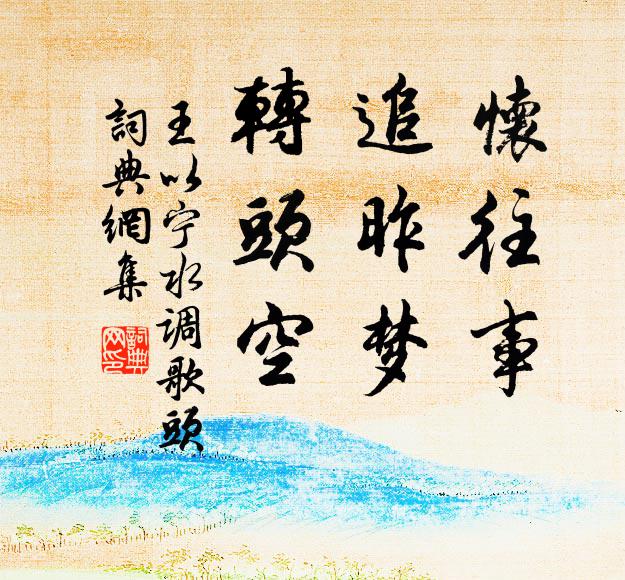 懷往事
追昨梦
轉頭空
王以宁水调歌頭
詞典網集
詞典网印